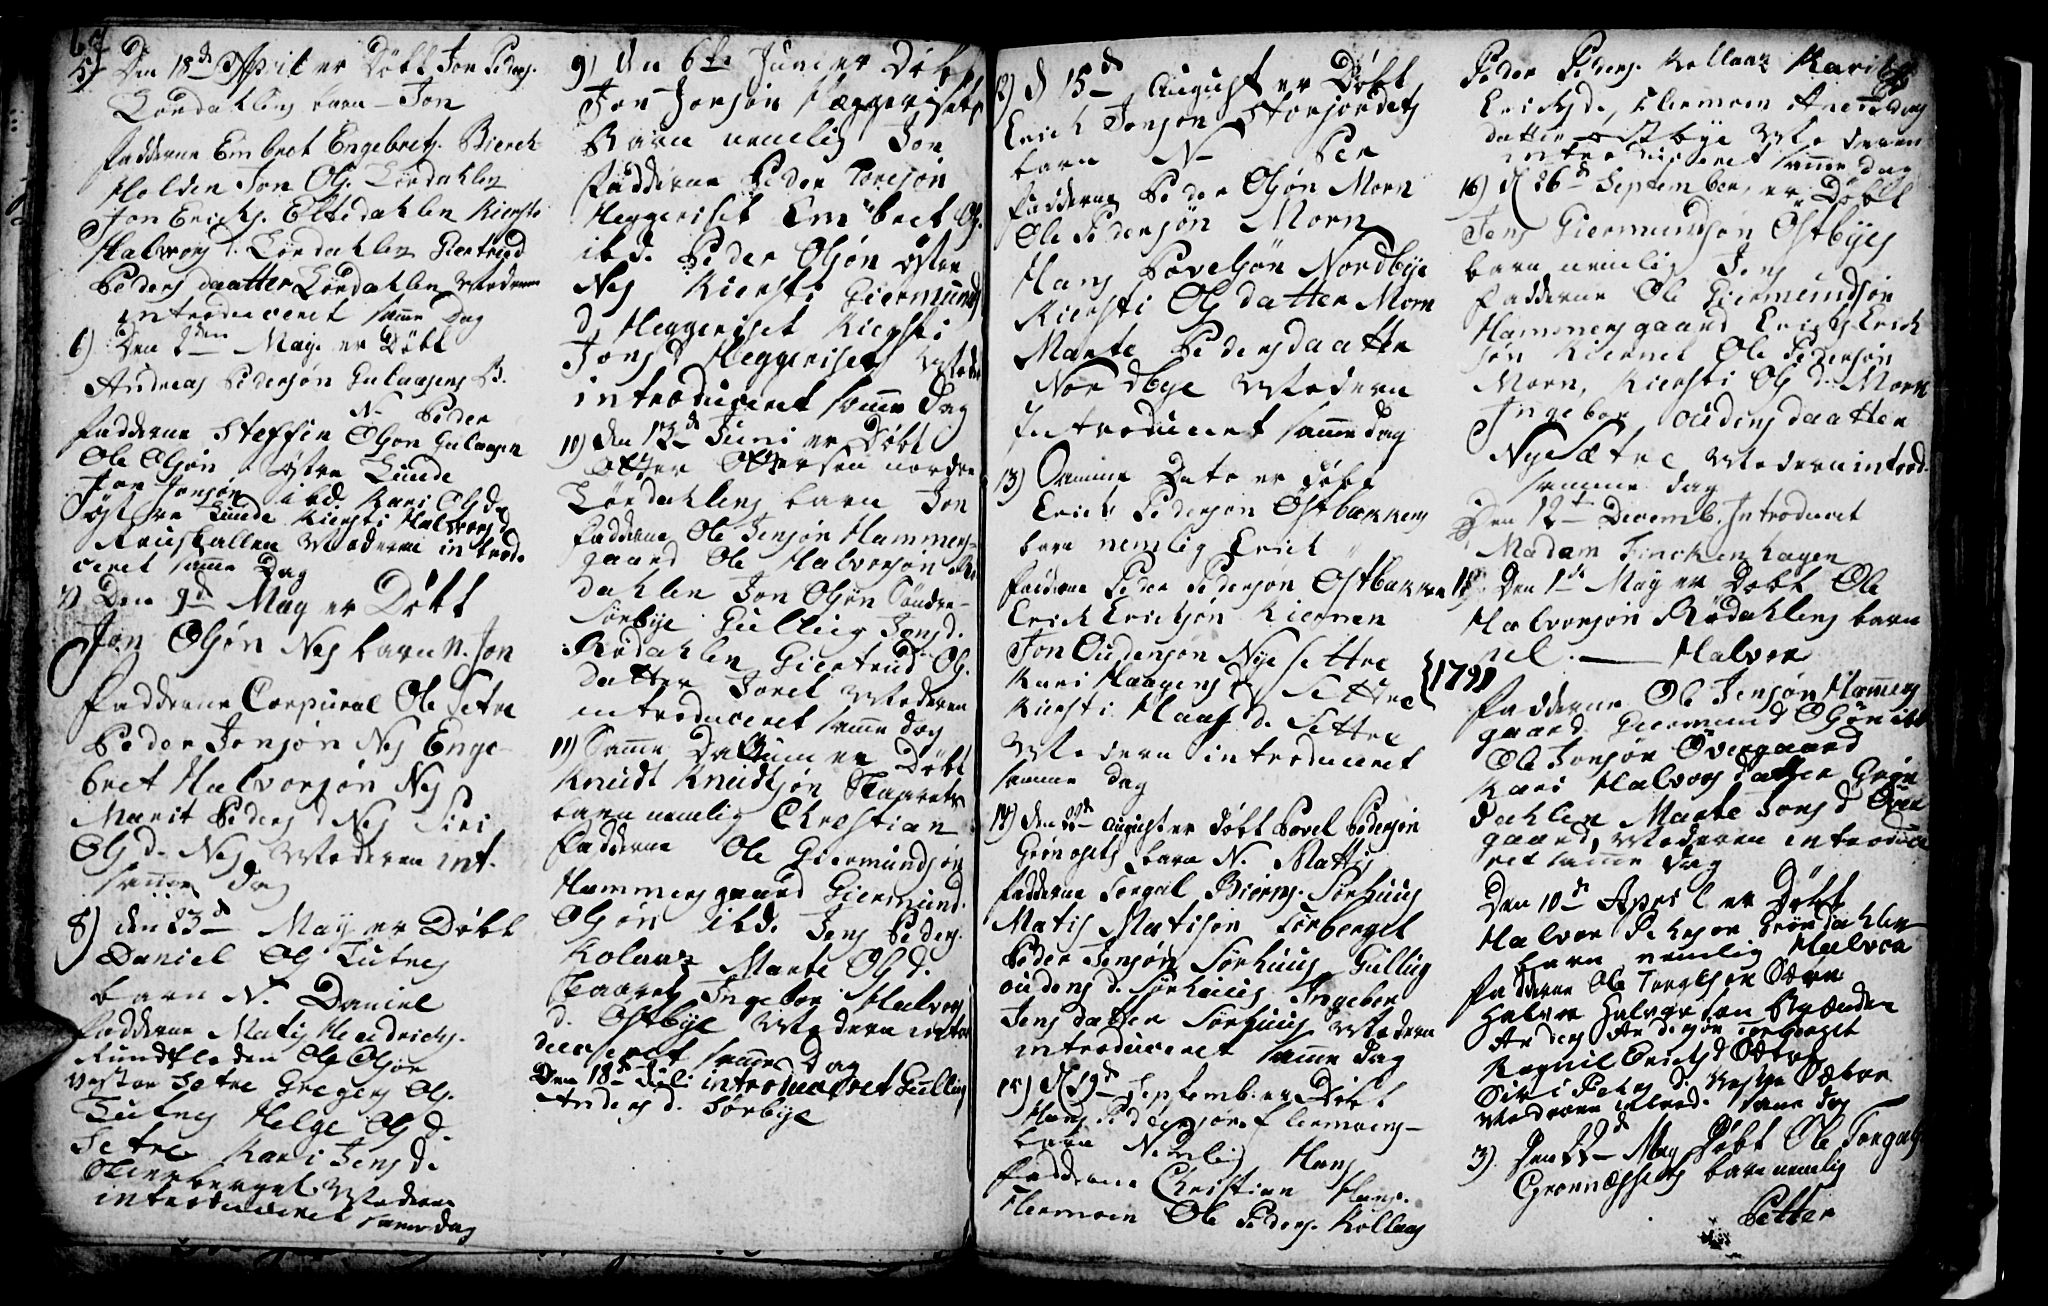 5) Den 18de April er Döbt Jon Peders.
Lördahlens barn - Jon
fadderne Embret Engebrets. Bierch
Holden Jon Ols. Lördahlen
Jon Ericks. Eltdahlen Kiersti
Halvors d. Lördahlen Giertrud
Peders daatter Lördahlen Moderen
introduceret samme Dag
6) Den May er Döbt
Andreas Pedersön Gulaasens B.
N. Peder
fadderne Steffen Olsön Gulaasen
Ole Olsön östre Lunde
Jon Jonsön ibd. Kari Ols d.
östre Lunde Kiersti Halvors d.
Moderen introd.
ceret samme Dag
7) Den 9d May er Döbt
Jon Olsön Nes barn N. Jon
fadderne Corpural Ole Setre
Peder Jonsön Nes Enge-
bret Halvorsön Nes
Marit Peders d Nes Siri
Ols d. Nes Moderen int.
samme dag
8) den 23d May er Döbt
Daniel Ols Lutnes
barn N. Daniel
fadderne Matis Hendrichs.
Rundfloden Ole Olsön
vestre Setre Gregers Ols.
Lutnes Helge Ols d.
Setre Kari Jens d.
Moderen
introduceret samme dag
9) den 6te Juni er Döbt
Jon Jonsön Heggerisets
Barn nemlig Jon
fadderne Peder Toresön
Heggeriset Embret Ols.
ibd. Peder Olsön östre
Nes Kiersti Giermunds
d. Heggeriset Kiersti
Jons d Heggeriset Moder
introduceret samme dag
10) den 13d Juni er Döbt
Otter Ottersen nordre
Lördahlens barn Jon
fadderne Ole Jensön Hammers-
gaard Ole Halvorsön
dahlen Jon Olsön Söndre-
Sörbye Gulling Jens d.
Rödahlen Giertrud Ols.
datter Joret Moderen
introduceret samme dag
11) Samme Datum er Döbt
Knudt Knudtsön Skaarets
barn nemlig Christian
fadderne Ole Giermundsön
Hammersgaard Giermund.
Olsön ibd. Jens Peders.
Kolaas Marte Ols d.
Skaaret Ingebor Halvors
d. Ostbye Moderen intro
duceret samme Dag
Den 18d Juli introduceret Gulling
Anders d. Sörbye
12) d 15de August er Döbt
Erich Jonsön Storjordets
barn N. Per
fadderne Peder Olsön Morn
Ole Pedersön Morn
Hans Povelsön Nordbye
Kiersti Ols datter Morn
Marte Peders daatter
Nordbye Moderen
Introduceret samme dag
13) Samme Dato er döbt
Erich Pedersön Ostbakkens
barn nemlig Erich
fadderne Peder Pedersön Ostbakken
Erich Ericksön Kiernen
Jon Oudensön Nye settre
Kari Haagens d Settre
Kiersti Haags d. Settre
Moderen introduceret
samme dag
14) den August er döbt Povel Pedersön
Grönosets barn N. Mattis
fadderne Torgal Biörns. Sörhuus
Matis Matisön Sörberget
Peder Jensön Sörhuus Gulling
oudens d. Sörhuus Ingebor
Jens datter Sörhuus Moderen
introduceret samme dag
15) d 19d Septemb. er Döbt
Hans Pedersön flermoens
barn Nemlig Hans
fadderne Christian Hans.
Flermoen Ole Peders. Kollaas
Peder Peders. Kollaas Kari
Ericks d. flermoen Anne Peders
datter ostbye Moderen
introduceret samme dag
16) d 26d September er Döbt
Jens Giermundsön Ostbyes
barn nemlig Jens
fadderne Ole Giermundsön
Hammersgaard Erich Erick
sön Kiernet Ole Pedersön
Morn, Kiersti Ols d. Morn
Ingebor oudens daatter
Nye Sætre Moderen introd.
samme dag
Den 12te Decemb. Introduceret
Madam Finckenhagen
1791
1) Den 1de May er Döbt Ole
Halvorsön Rödahlens barn
nel. Halvor
fadderne Ole Jensön Hamers
gaard Giermund Olsön ibd
Ole Jonsön Övergaard
Kari Halvors datter Grön
dahlen Marte Jons d Över
gaard, Moderen introduce
ret samme dag
Den 10d April er Döbt
Halvor Pehrsen Gröndahlen
barn nemlig Halvor
fadderne Ole Torgelsen Sætre
Halvor Halvorsen Brænden
Anders Andersön Sörberget
Ragnil Erichs d Sætre
Siri Pehrs d. vestre Sætre
Moderen introd. samme dag
3) Den 22d May Döbt Ole Torgals
Groenæssets barn nemlig
Petter